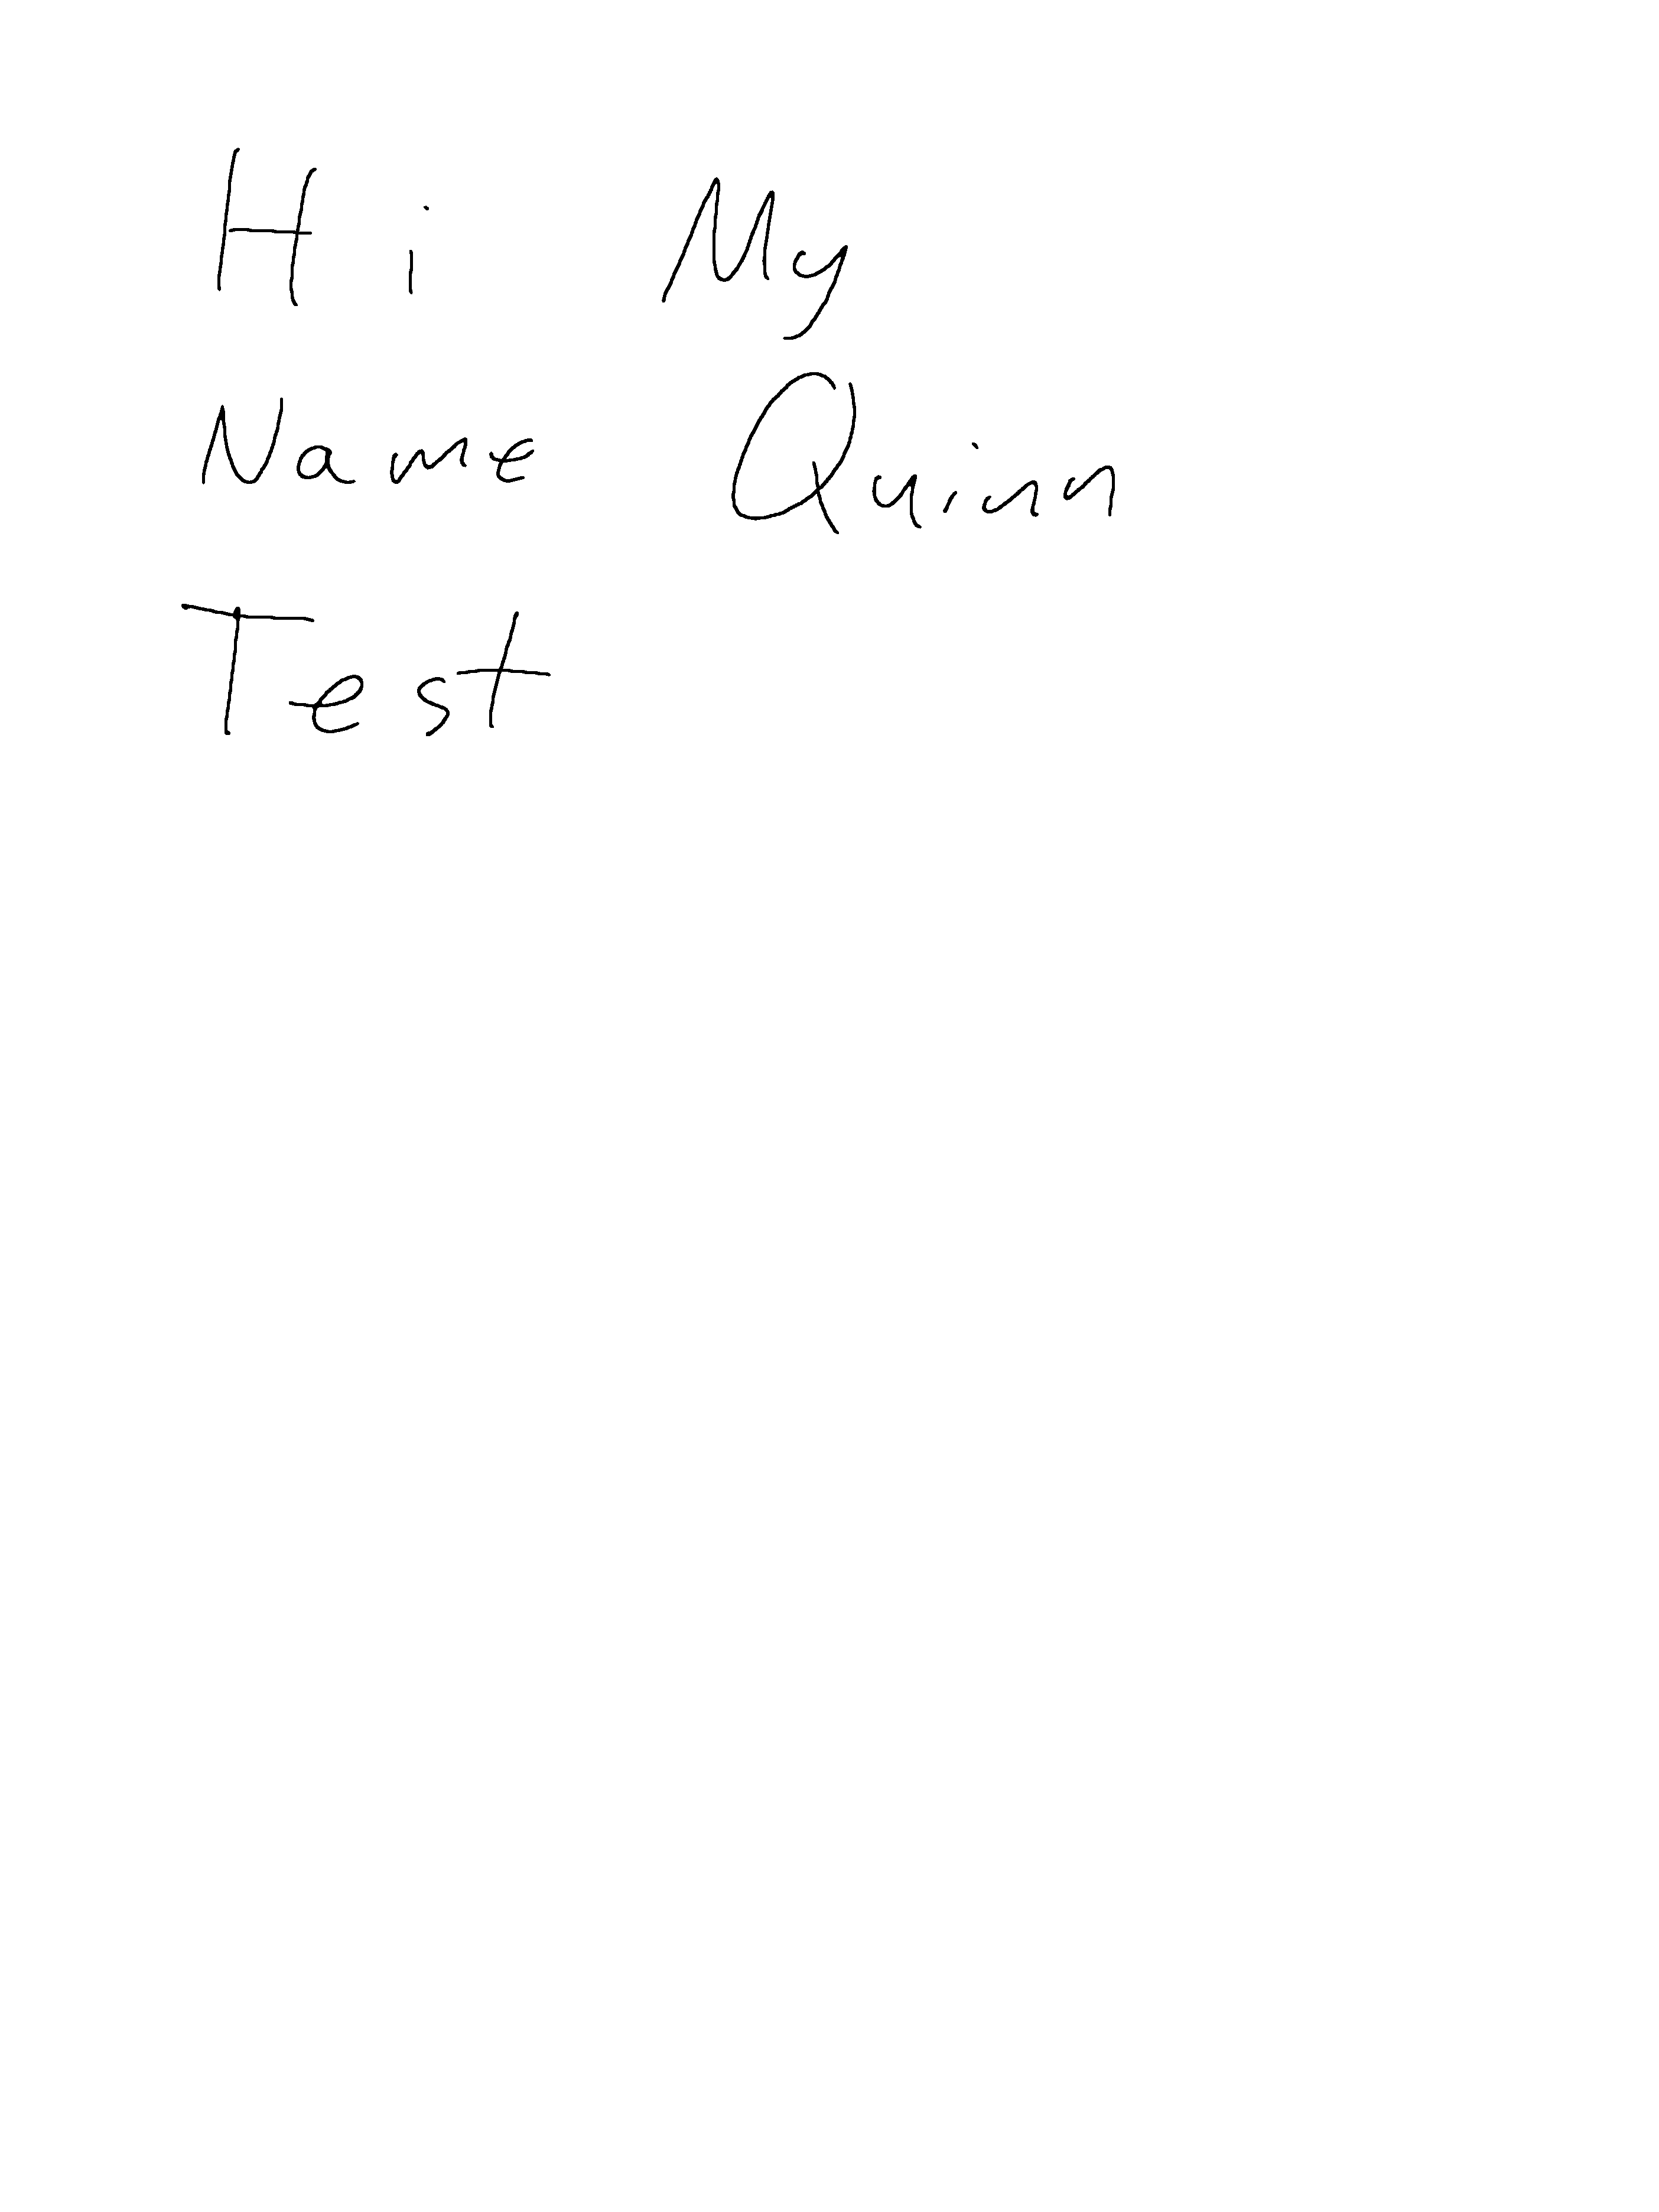 Hi My
Name Quinn
Test